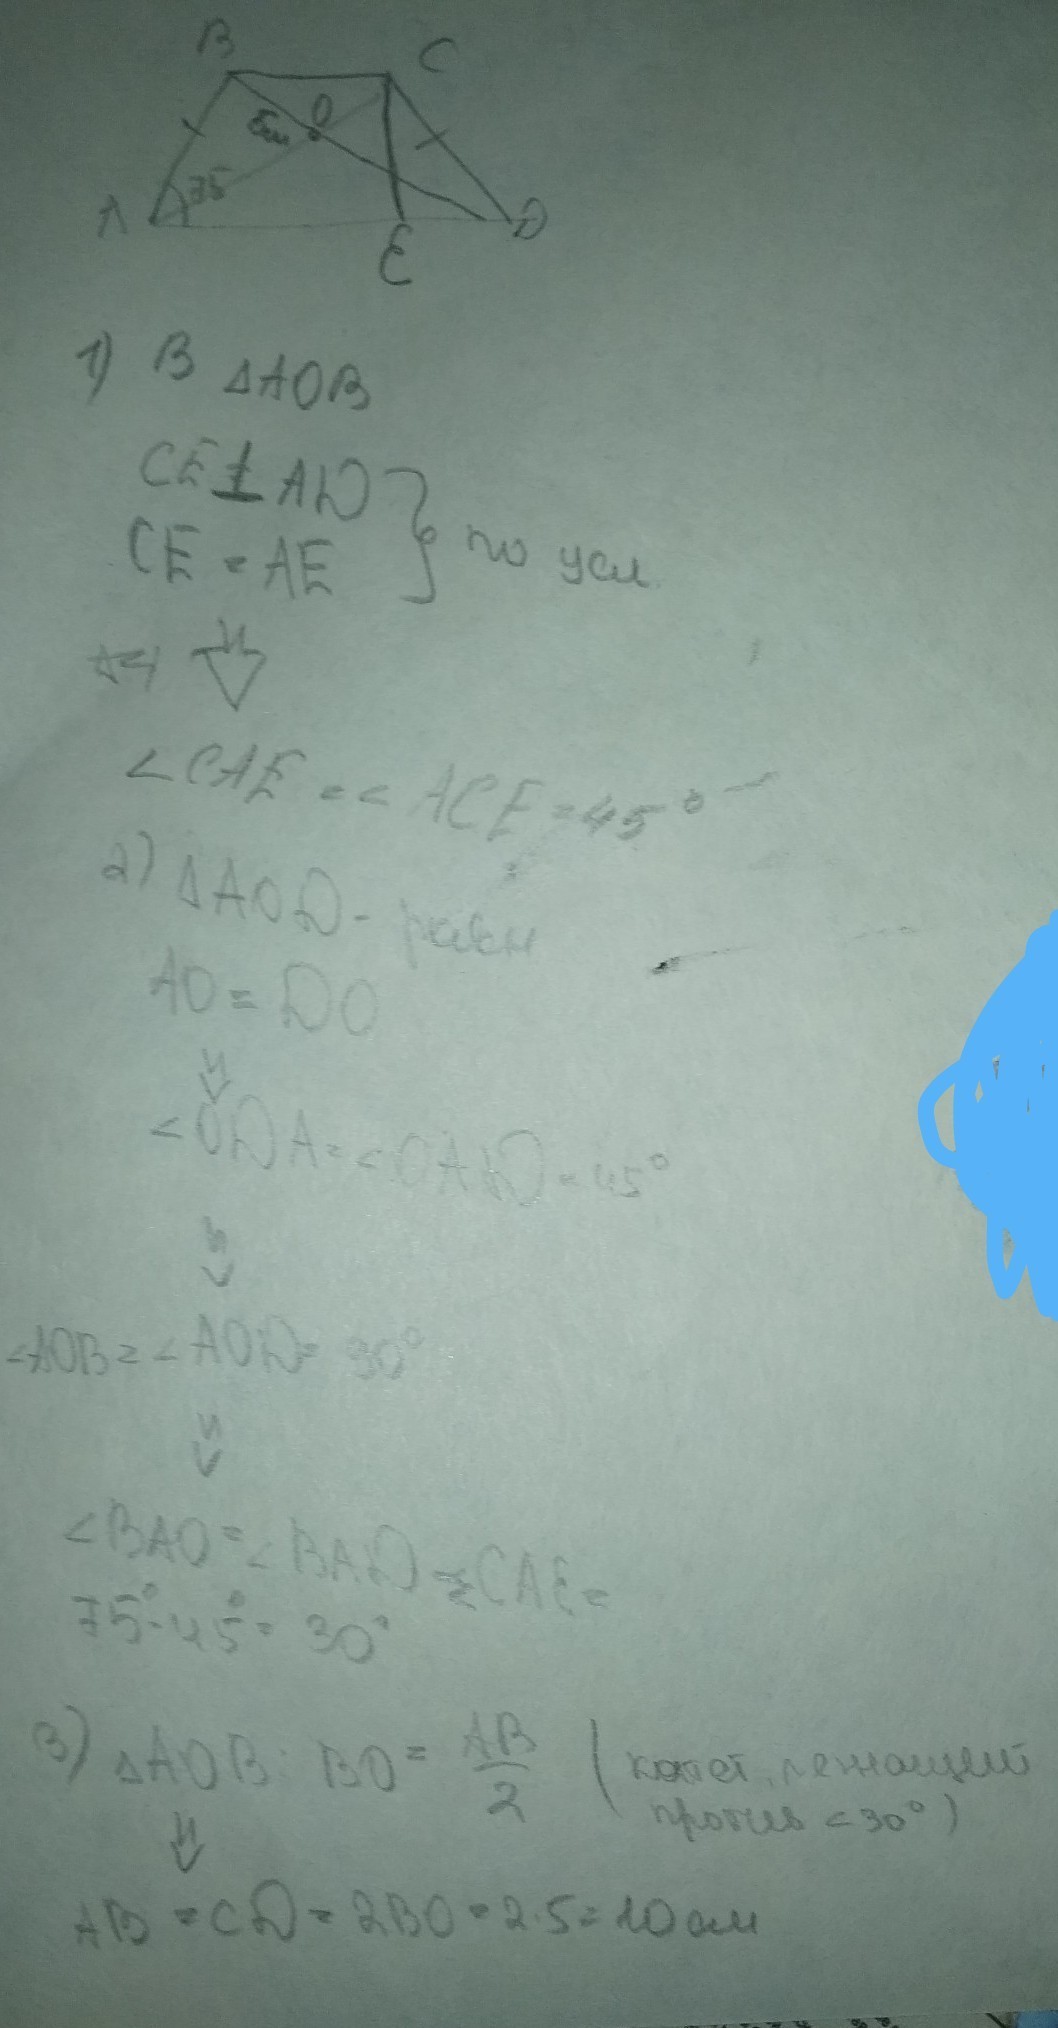 B C
5см O
75
A D
E
1) В ΔAOB
CE ⊥ AD
CE = AE } по усл.
⇓
<CAE = < ACE = 45°
2) ΔAOD - равн
AO = DO
⇓
<ODA = <OAD = 45°
⇓
<AOB = < AOD = 90°
⇓
<BAO = < BAD - CAE =
75° - 45° = 30°
3) ΔAOB: BO = AB/2 (катет, лежащий
против < 30°)
⇓
AB = CD = 2BO = 2·5 = 10 см